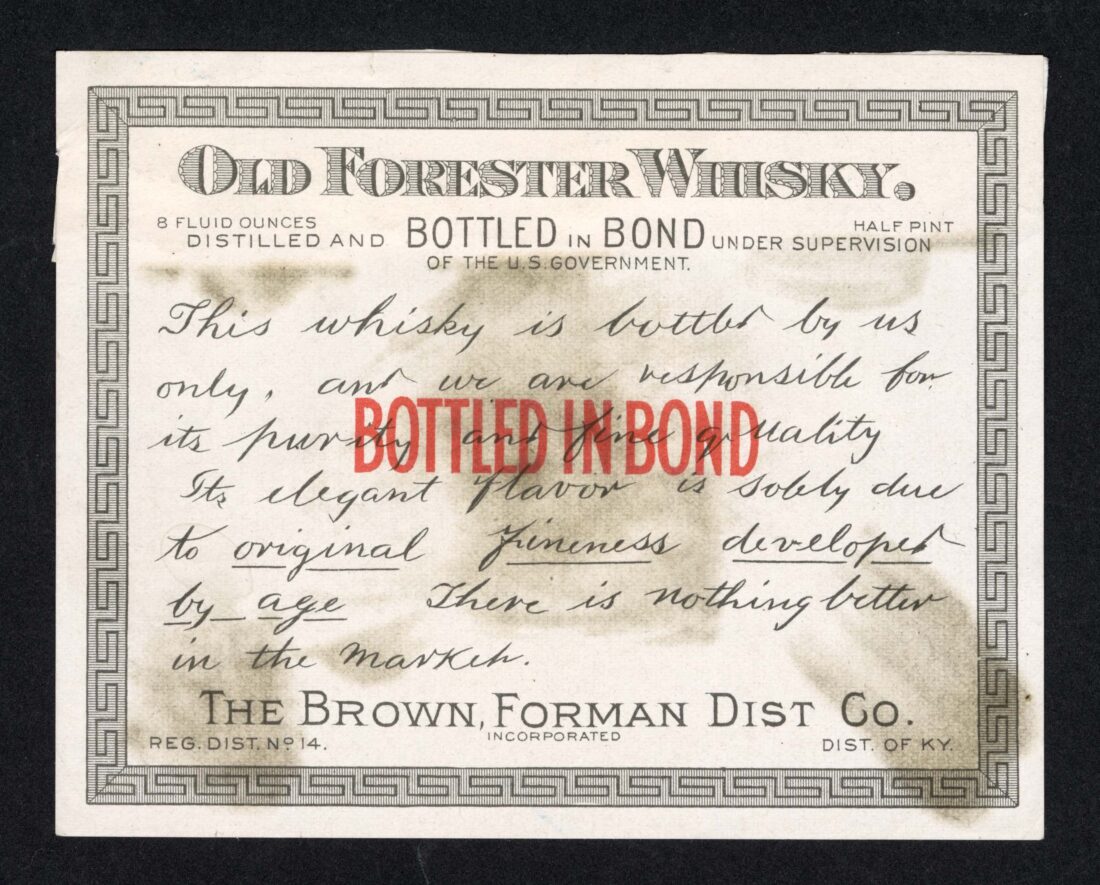 OLD FORESTER WHISKY.
8 FLUID OUNCES HALF PINT
DISTILLED AND BOTTLED IN BOND UNDER SUPERVISION
OF THE U.S. GOVERNMENT.
This whisky is bottled by us
only, and we are responsible for
its purity and fine quality
BOTTLED IN BOND
Its elegant flavor is solely due
to original fineness developed
by age There is nothing better
in the market.
THE BROWN, FORMAN DIST CO.
INCORPORATED
REG. DIST. No 14. DIST. OF KY.